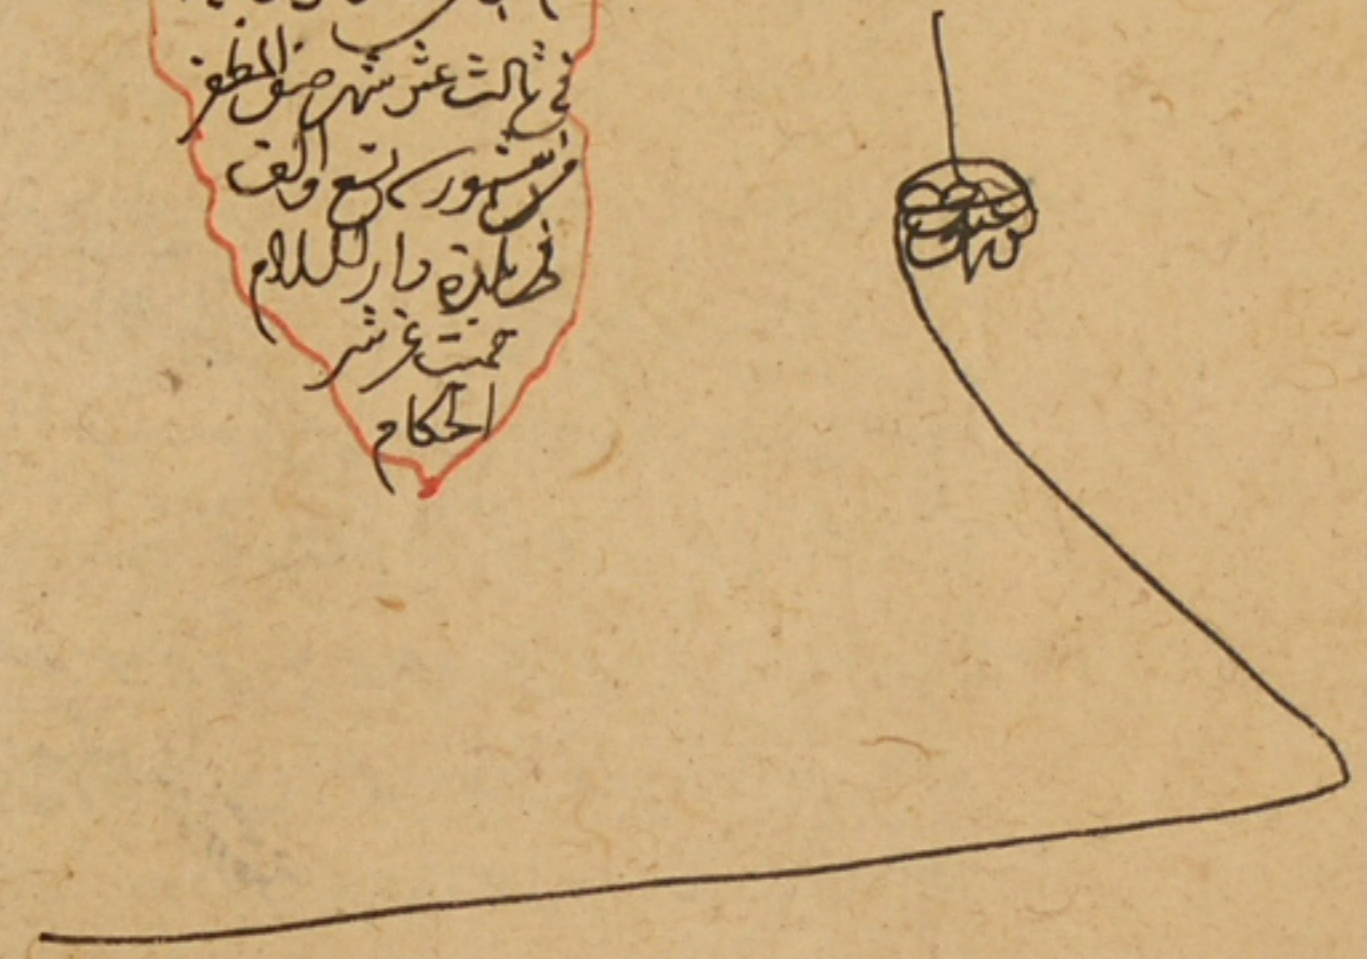 في ثالث عشر شهر صفر المظفر
من شهور سنة تسع والف
في بلدة دار السلام
حميت عن شر
الحكام